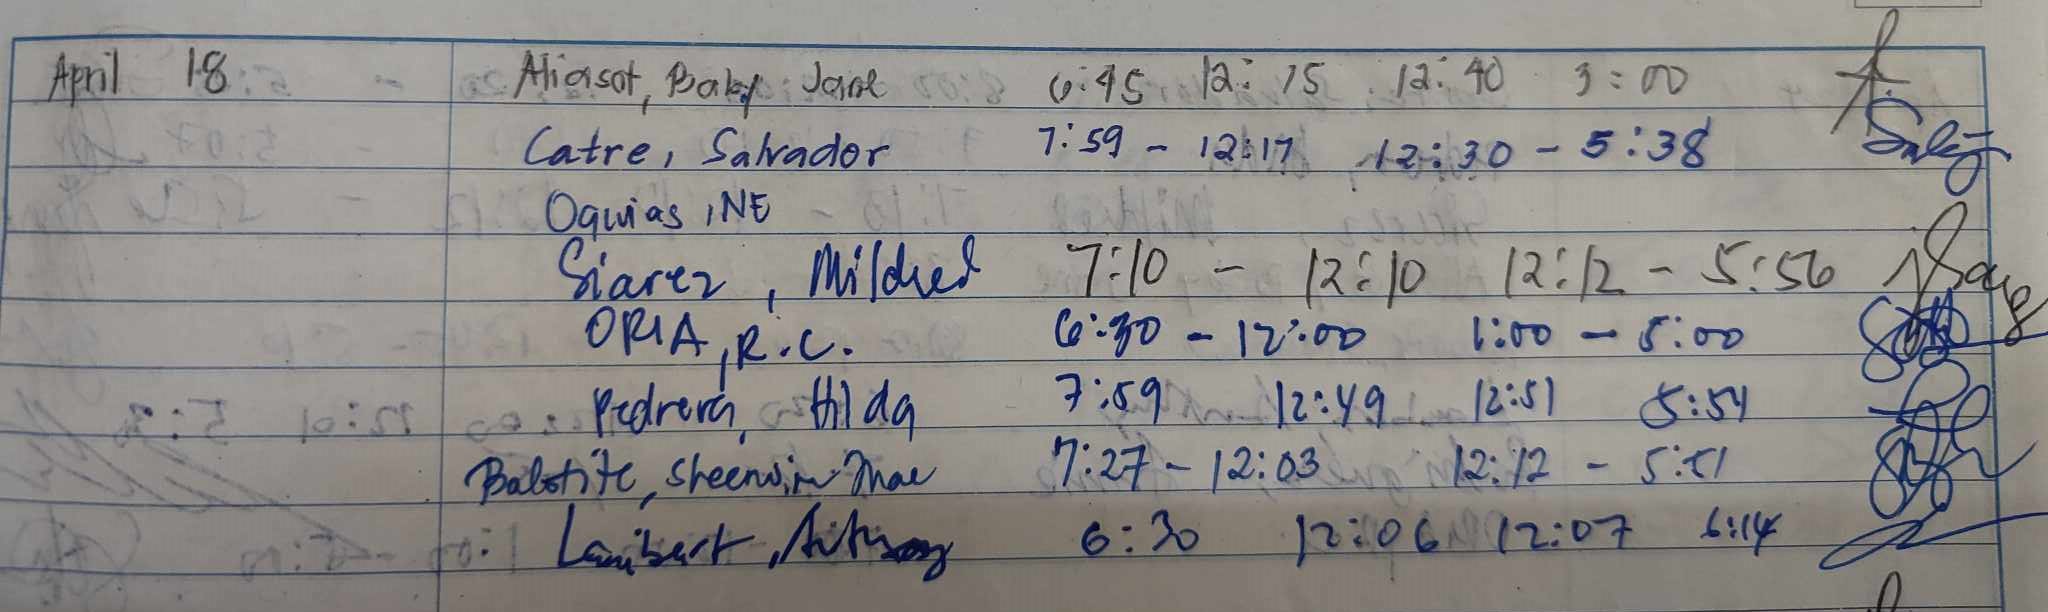 April 18 Aliasot, Baby Jane 6:45 12:15 12:40 3:00
Catre, Salvador 7:59 - 12:17 12:30 - 5:38
Oquias, NE
Siarez, Mildred 7:10 - 12:10 12:12 - 5:56
ORIA, R.C. 6:30 - 12:00 1:00 - 5:00
Pedrera, Hilda 7:59 12:49 12:51 5:54
Balotite, Sheenwin Mae 7:27 - 12:03 12:12 - 5:51
Lambert, 6:30 12:06 12:07 6:14